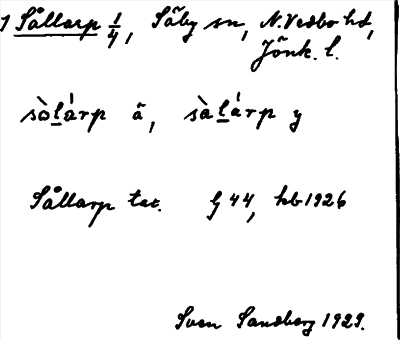 1 Sållarp 1/4, Säby sn, N. Vedbo hd,
Jönk. l.
sòlárp ä, sàlárp y
Sållarp tat. G 44, hb 1926
Sven Sandberg 1929.